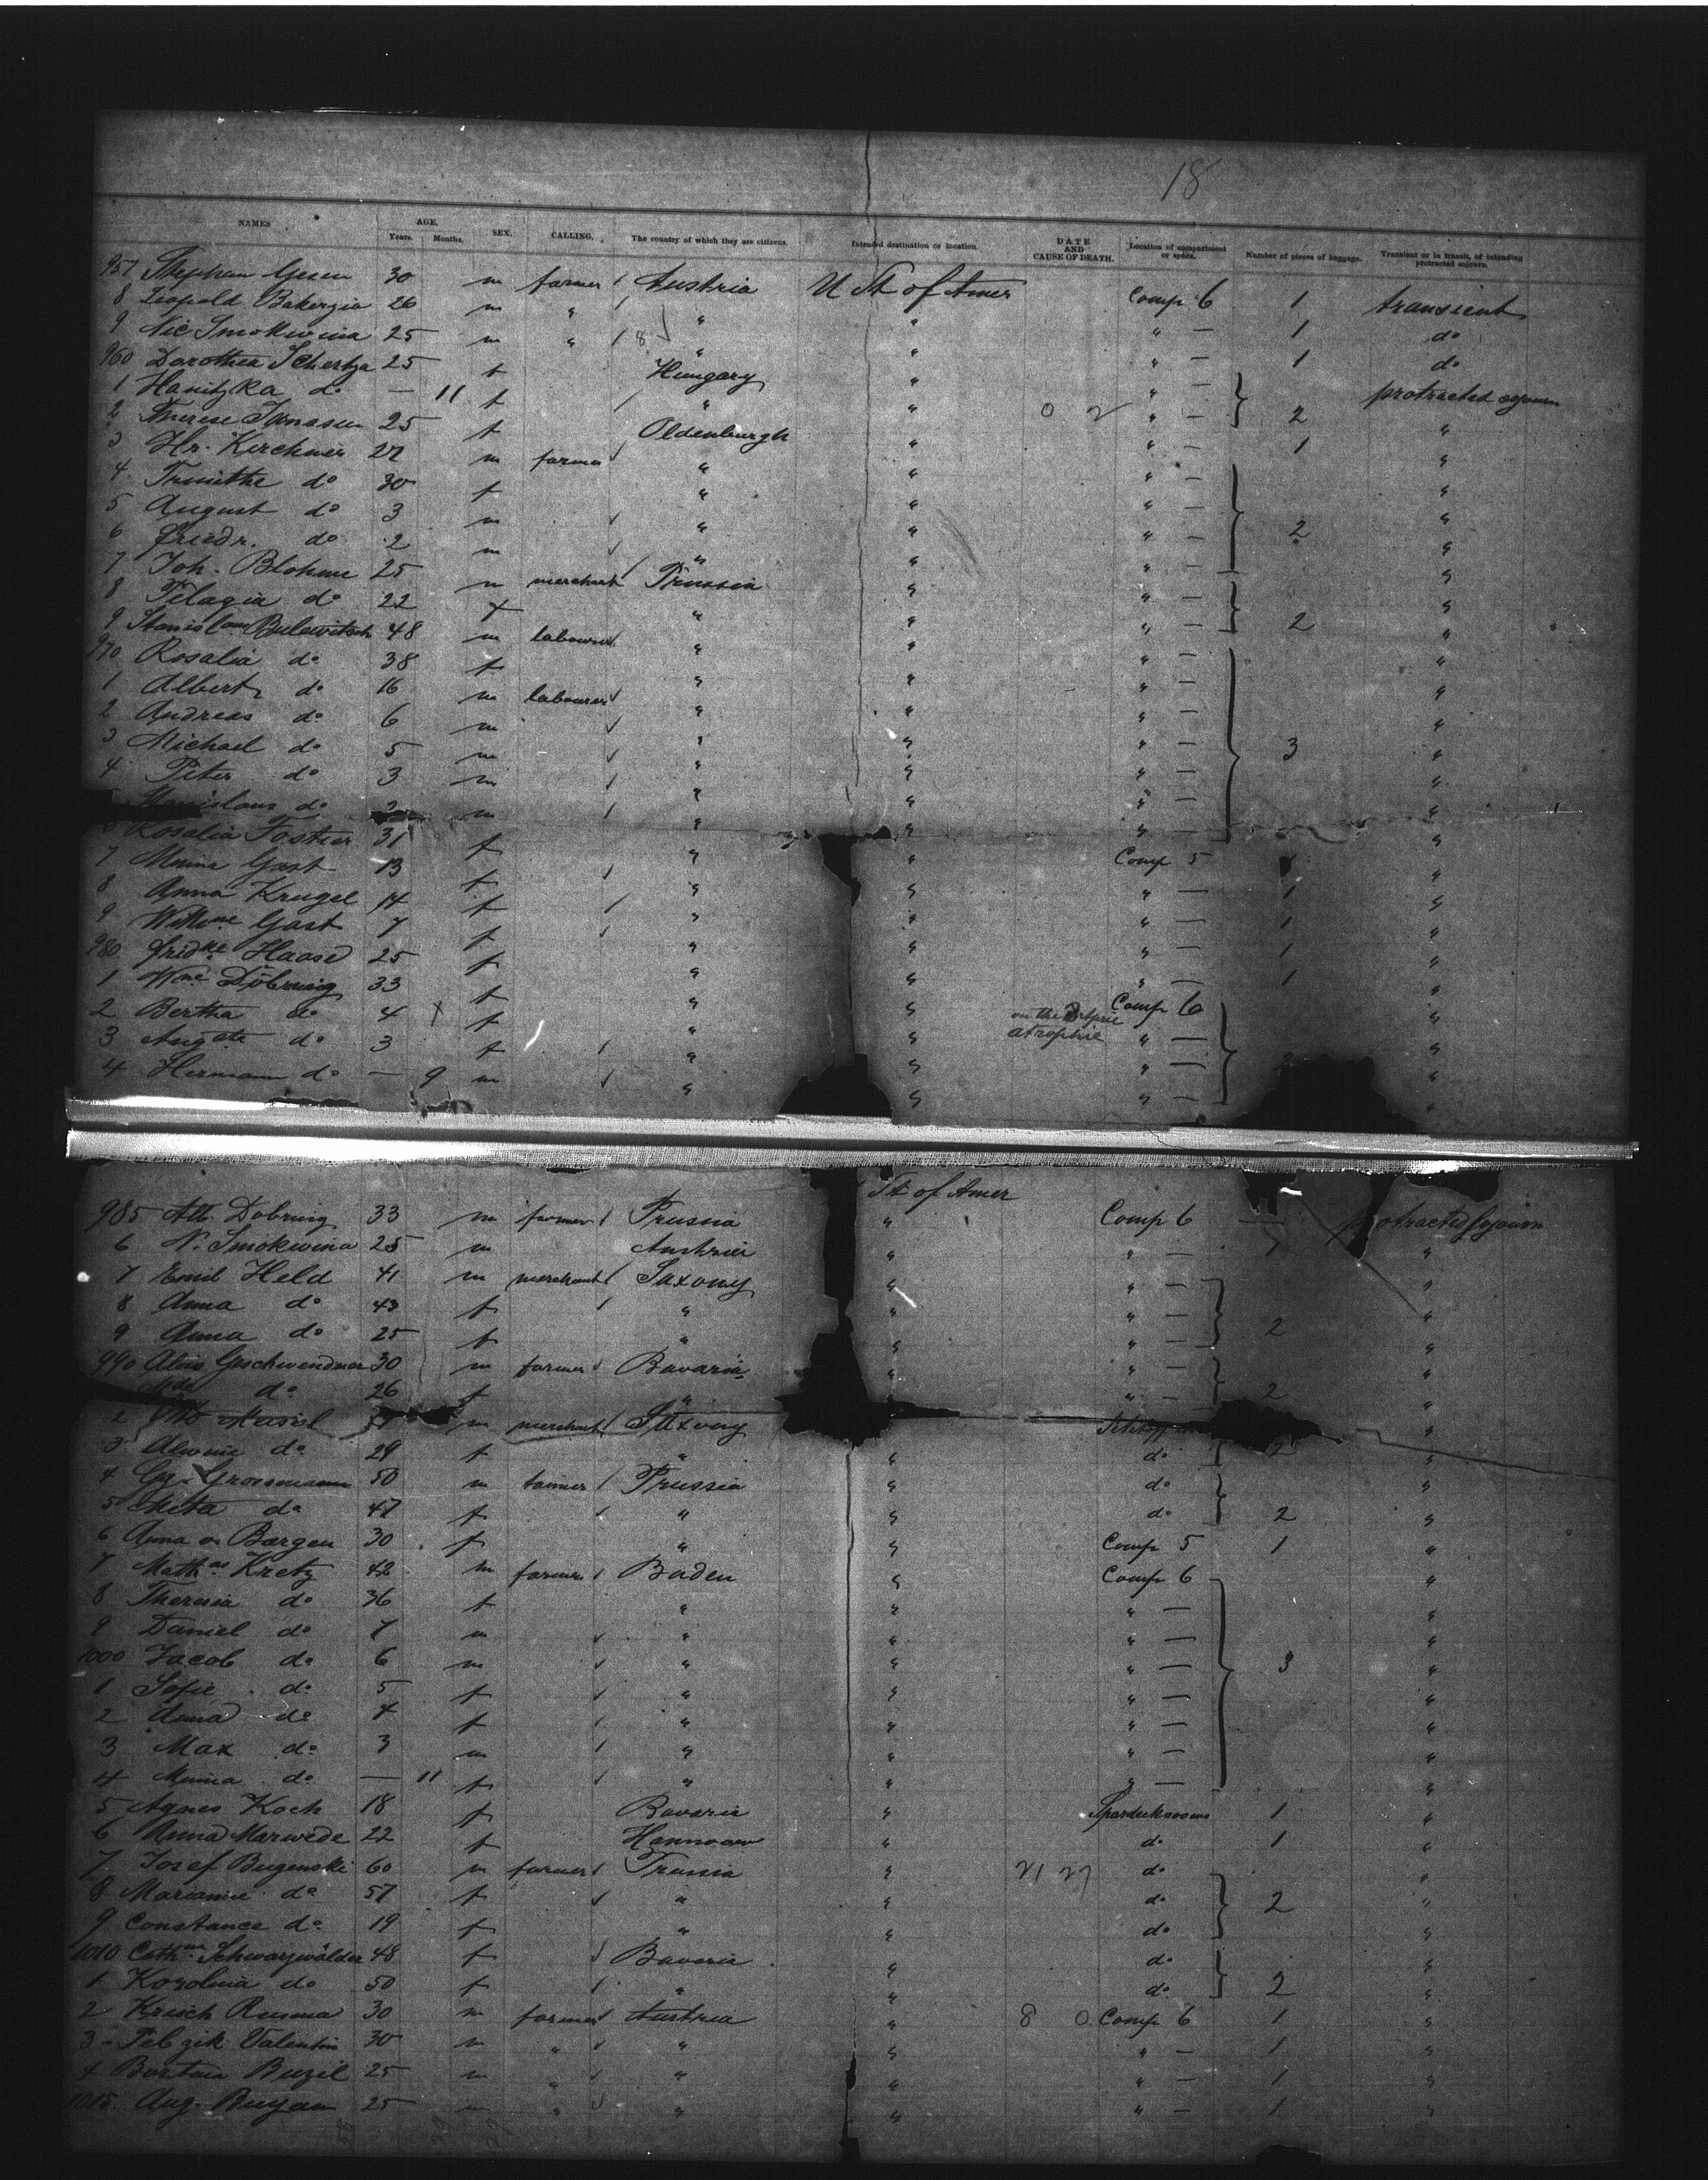 18
NAMES AGE. Years. Months. SEX. CALLING. The country of which they are citizens. Intended destination or location. DATE AND CAUSE OF DEATH. Location of compartment or space. Number of pieces of baggage. Transient or in transit, or intending protracted sojourn.
957 Stephan 30 m farmer Austria U St of Amer Comp 6 1 transient
8 Leopold 26 m " " " " — 1 do
9 Nic Smokwina 25 m " 8 " " " — 1 do
960 Dorothea 25 f Hungary " " — protracted sojourn
1 do — 11 f " " " — 2 "
2 Therese 25 f Oldenburgh " " — 1 "
3 Hr. Kirchner 27 m farmer " " " — "
4 do 30 f " " " — "
5 August do 3 m " " " — 2 "
6 Friedr. do 2 m " " " — "
7 Joh. Blohme 25 m merchant Prussia " " — "
8 Pelagia do 22 f " " " — 2 "
9 Stanislaus Bulewitsch 48 m labourer " " " — "
970 Rosalia do 38 f " " " — "
1 Albert do 16 m labourer " " " — "
2 Andreas do 6 m " " " — "
3 Michael do 5 m " " " — 3 "
4 Peter do 3 m " " " — "
Stanislaus do m " " " — "
Rosalia 31 f " " Comp 5 "
7 Minna Gast 13 f " " " — 1 "
8 Anna Krugel 14 f " " " — 1 "
9 Gast 7 f " " " — 1 "
980 Haase 25 f " " " — 1 "
1 Döbring 33 f " " Comp 6 "
2 Bertha do 4 f " " on the atrophie " — "
3 do 3 f " " " — "
4 Hermann do — 9 m " " " — "
St of Amer
985 Alb. Dobring 33 m farmer Prussia " Comp 6 — protracted sojourn
6 N. Smokwina 25 m Austria " " — "
7 Emil Held 41 m merchant Saxony " " — "
8 Anna do 43 f " " " — 2 "
9 Anna do 25 f " " " — "
990 Alois Geschwendner 30 m farmer Bavaria " " — "
do 26 f " " " — 2 "
2 Otto m merchant Saxony "
3 Alwine do 29 f " " do 2 "
4 Grossmann 50 m Prussia " do "
5 Meta do 47 f " " do 2 "
6 Anna v. Bargen 30 f " " Comp 5 1 "
7 Kretz 42 m farmer Baden " Comp 6 "
8 Theresia do 36 f " " " — "
9 Daniel do 7 m " " " — "
1000 Jacob do 6 m " " " — 3 "
1 Sofie do 5 f " " " — "
2 Anna do 4 f " " " — "
3 Max do 3 m " " " — "
4 Minna do — 11 f " " " — "
5 Agnes Koch 18 f Bavaria " 1 "
6 Anna Marwede 22 f Hannover " do 1 "
7 Josef Bugenski 60 m farmer Prussia " 21 27 do "
8 Marianne do 57 f " " do 2 "
9 Constance do 19 f " " do "
1010 Schwarzwälder 48 f Bavaria " do "
1 Karolina do 50 f " " do 2 "
2 30 m farmer Austria " 8 0 Comp 6 1 "
3 Valentin 30 m " " " " — 1 "
4 25 m " " " " — 1 "
1015 Aug. 25 m " " " " — 1 "